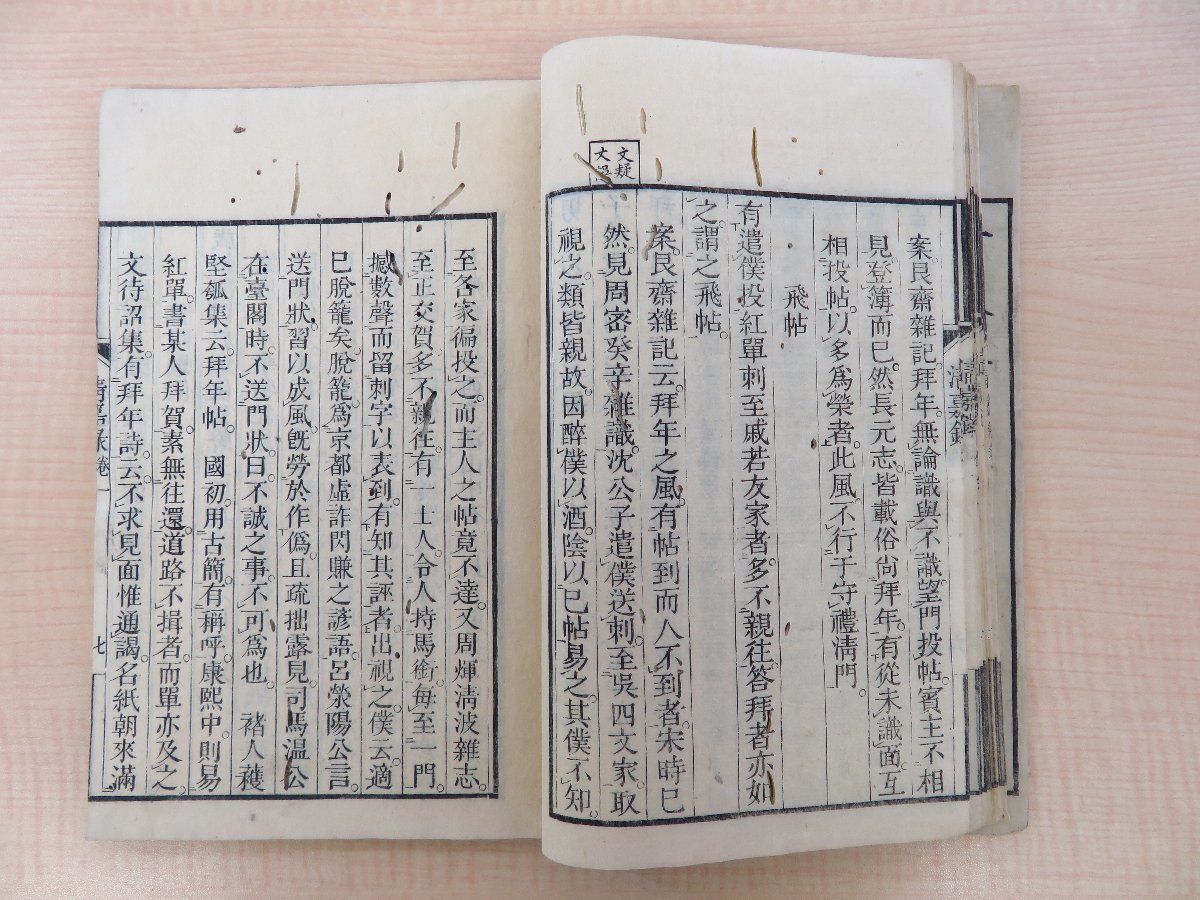 案艮齋雜記拜年無論識與不識望門投帖賓主不相
見登簿而已然長元志皆載俗尙拜年有從未識面互
相投帖以多爲榮者此風不行于守禮淸門
飛帖
有遣僕投紅單刺至戚若友家者多不親往答拜者亦如
之謂之飛帖
案艮齋雜記云拜年之風有帖到而人不到者宋時已
然見周密癸辛雜識沈公子遣僕送刺至吳四丈家取
視之類皆親故因醉僕以酒陰以已帖易之其僕不知
文疑
丈
至各家徧投之而主人之帖竟不達又周煇淸波雜志
至正交賀多不親往有一士人令人持馬銜每至一門
撼數聲而留刺字以表到有知其誣者出視之僕云適
已脫籠矣脫籠爲京都虛詐閃賺之諺語呂滎陽公言
送門狀習以成風旣勞於作僞且疏拙露見司馬溫公
在臺閣時不送門狀曰不誠之事不可爲也 褚人穫
堅瓠集云拜年帖 國初用古簡有稱呼康熙中則易
紅單書某人拜賀素無往還道路不揖者而單亦及之
文待詔集有拜年詩云不求見面惟通謁名紙朝來滿
淸嘉錄卷一
七
淸嘉錄